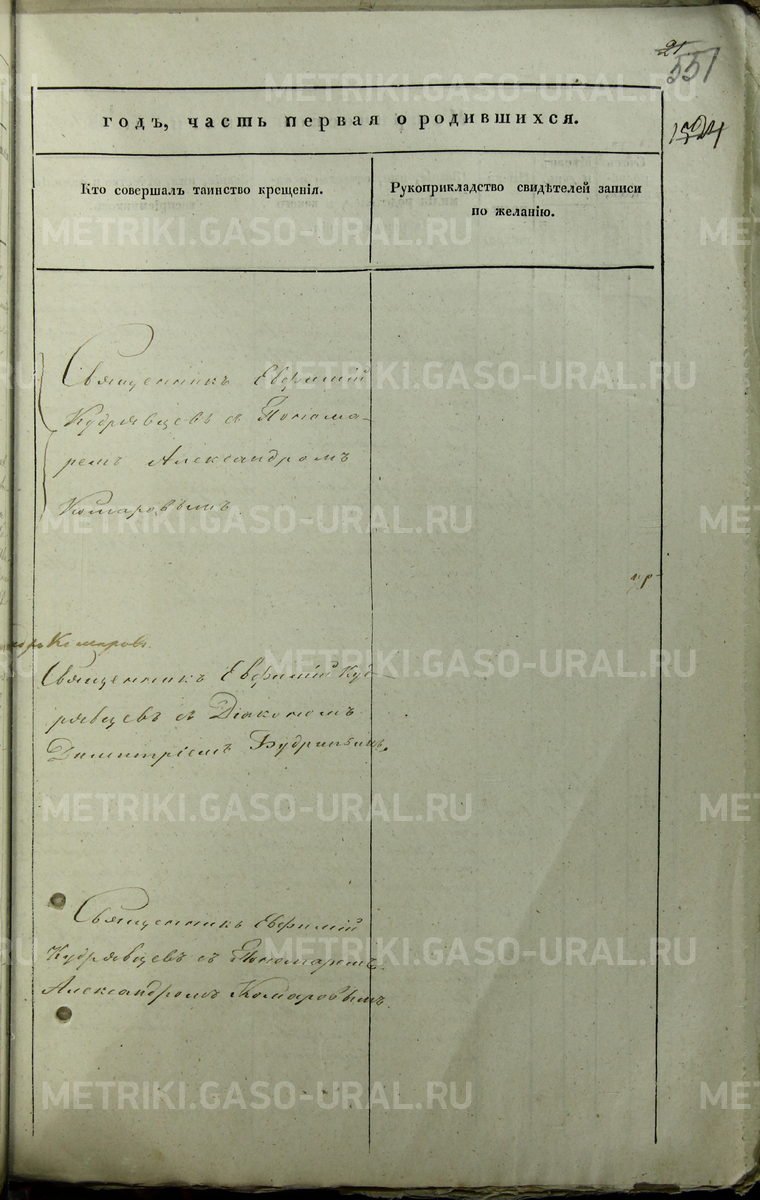 21
551
1524
годъ, часть первая о родившихся.
Кто совершалъ таинство крещенія.
Рукоприкладство свидѣтелей записи
по желанію.
Священникъ Евфимій
Кудрявцевъ съ Понома-
ремъ Александромъ
Комаровымъ.
Комаровъ.
Священникъ Евфимій Куд-
рявцевъ съ Діакономъ
Димитріемъ
Священникъ Евфимій
Кудрявцевъ съ Пономаремъ
Александромъ Комаровымъ.
METRIKI.GASO-URAL.RU